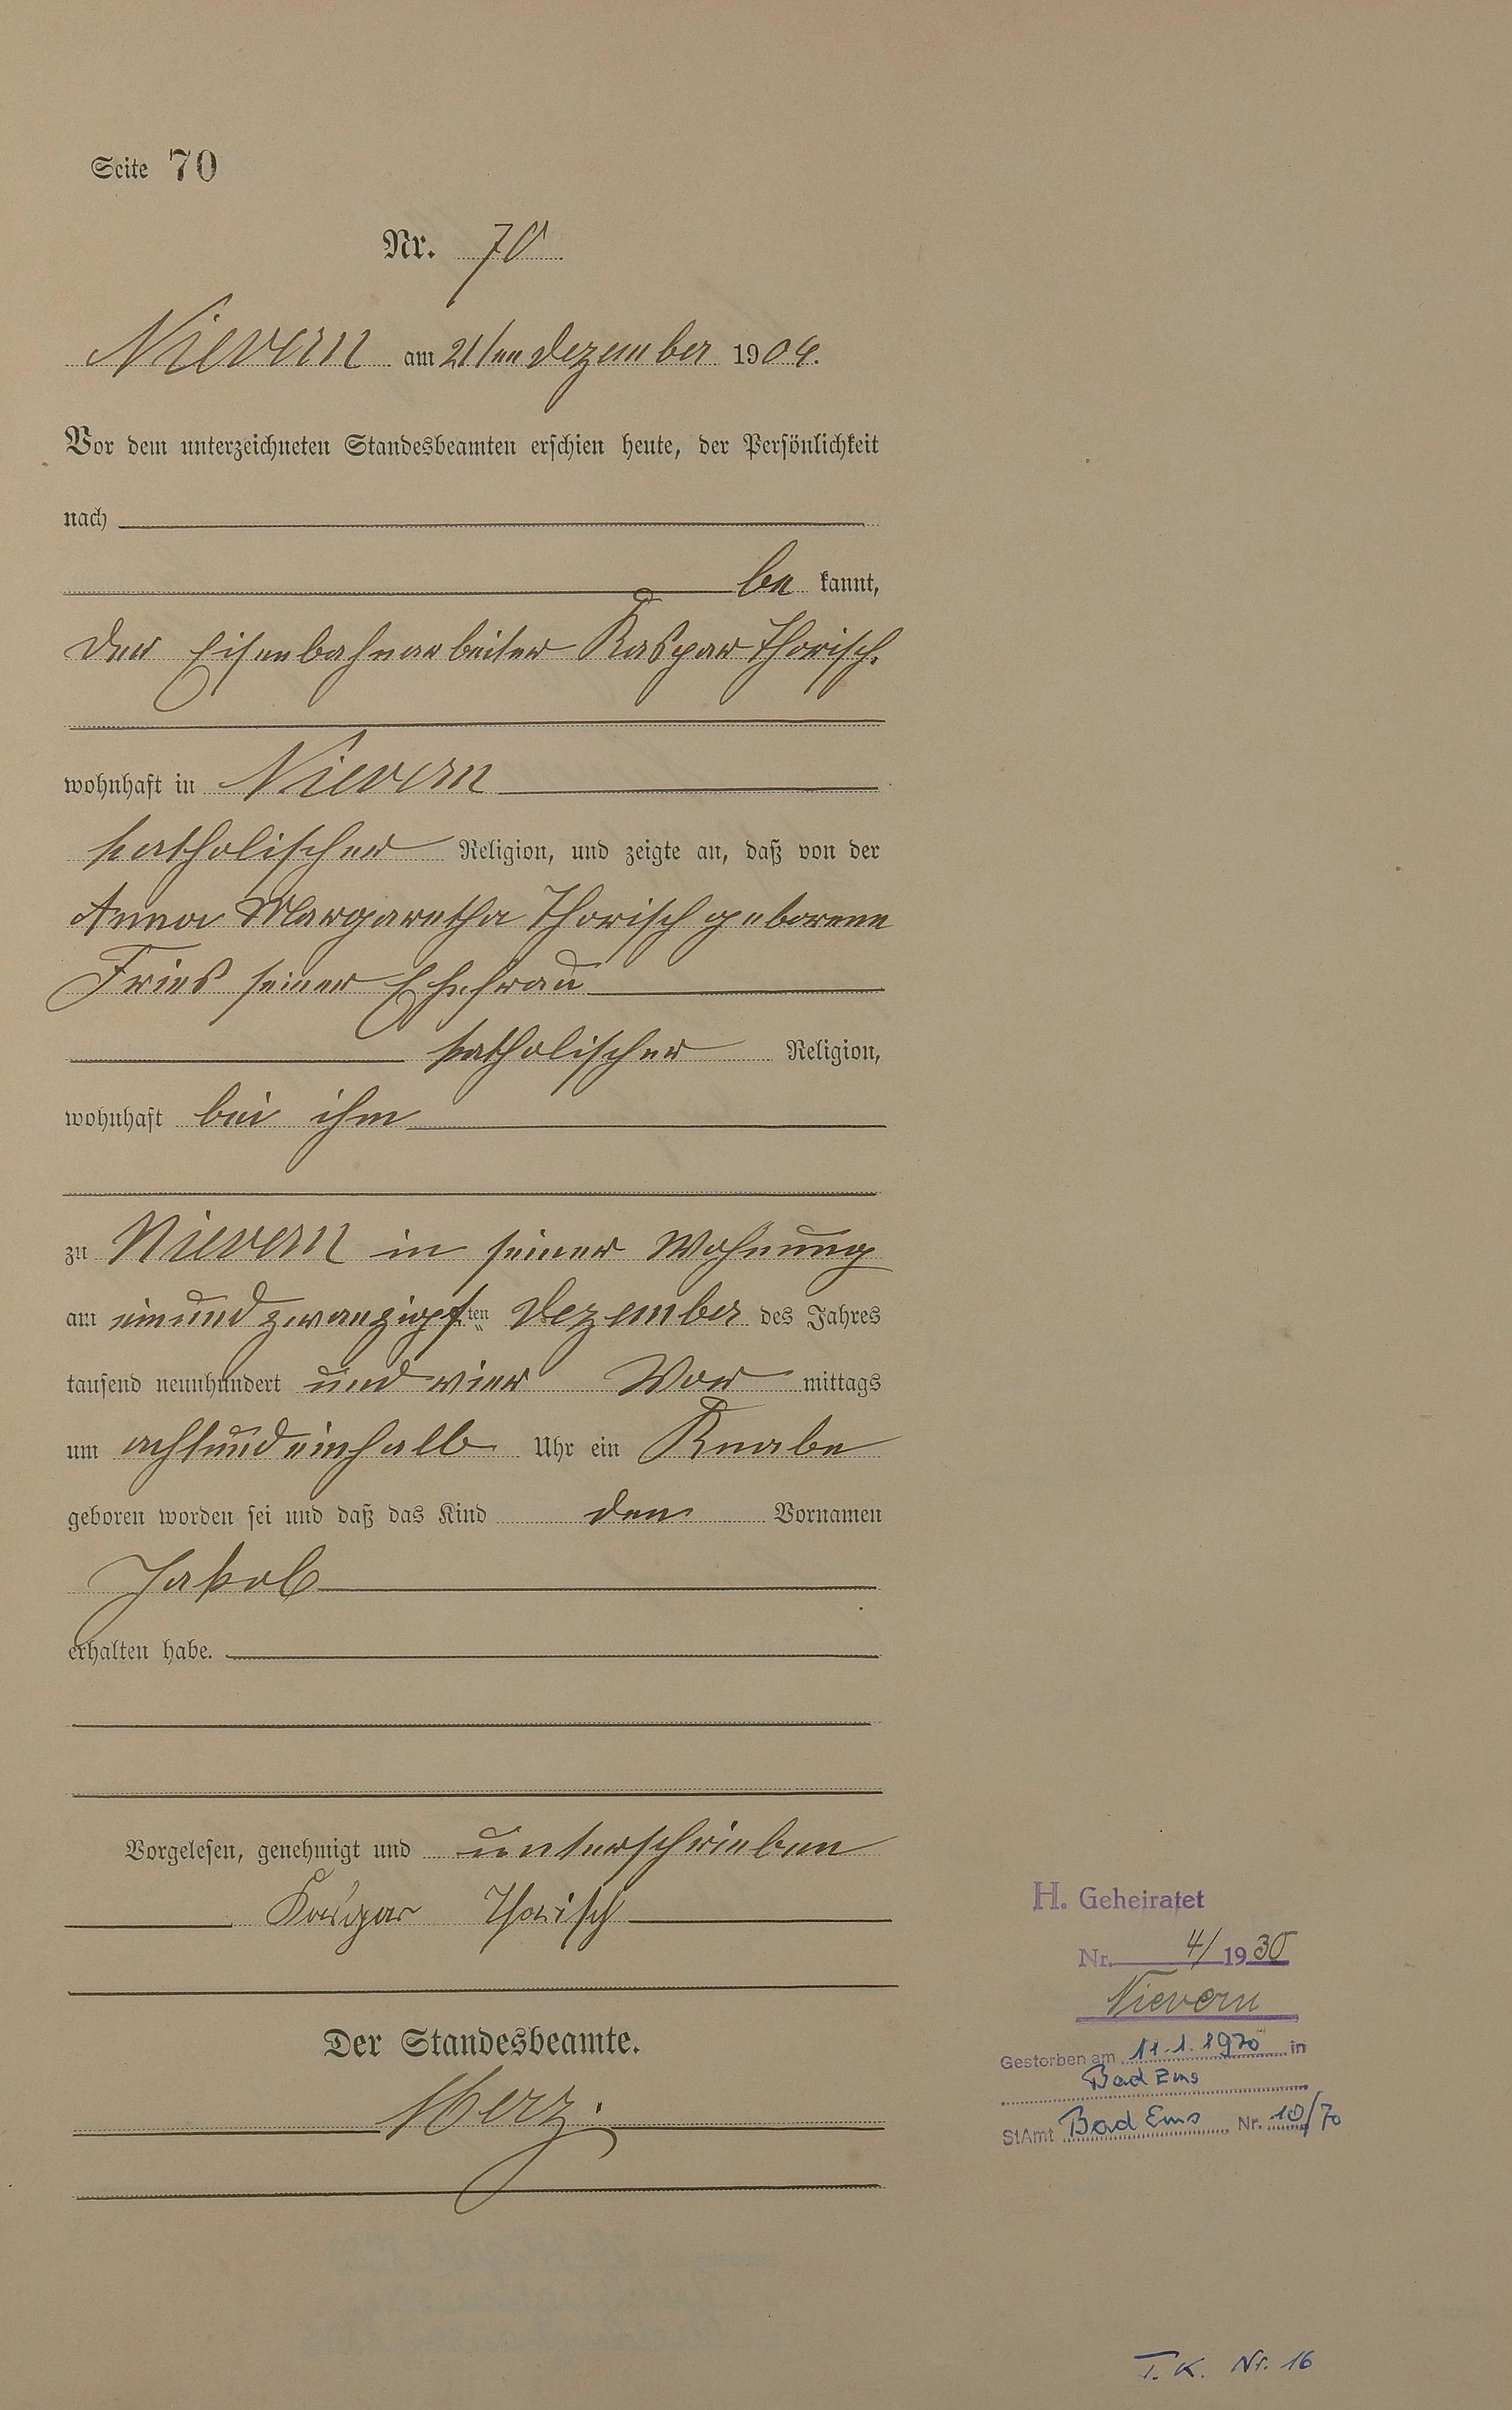 Seite 70
Nr. 70
Nievern am 21ten Dezember 1904.
Vor dem unterzeichneten Standesbeamten erschien heute, der Persönlichkeit
nach
be kannt,
der Eisenbahnarbeiter Kaspar Thorisch.
wohnhaft in Nievern
katholischer Religion, und zeigte an, daß von der
Anna Margaretha Thorisch geborene
Fries seiner Ehefrau
katholischer Religion,
wohnhaft bei ihm
zu Nievern in seiner Wohnung
am einundzwanzigsten Dezember des Jahres
tausend neunhundert und vier Vor mittags
um achtundeinhalb Uhr ein Knabe
geboren worden sei und daß das Kind den Vornamen
Jakob
erhalten habe.
Vorgelesen, genehmigt und unterschrieben
Kaspar Thorisch
Der Standesbeamte.
Merz.
H. Geheiratet
Nr. 4/1930
Nievern
Gestorben am 11.1.1970 in
Bad Ems
StAmt Bad Ems Nr. 10/70
T. K. Nr. 16